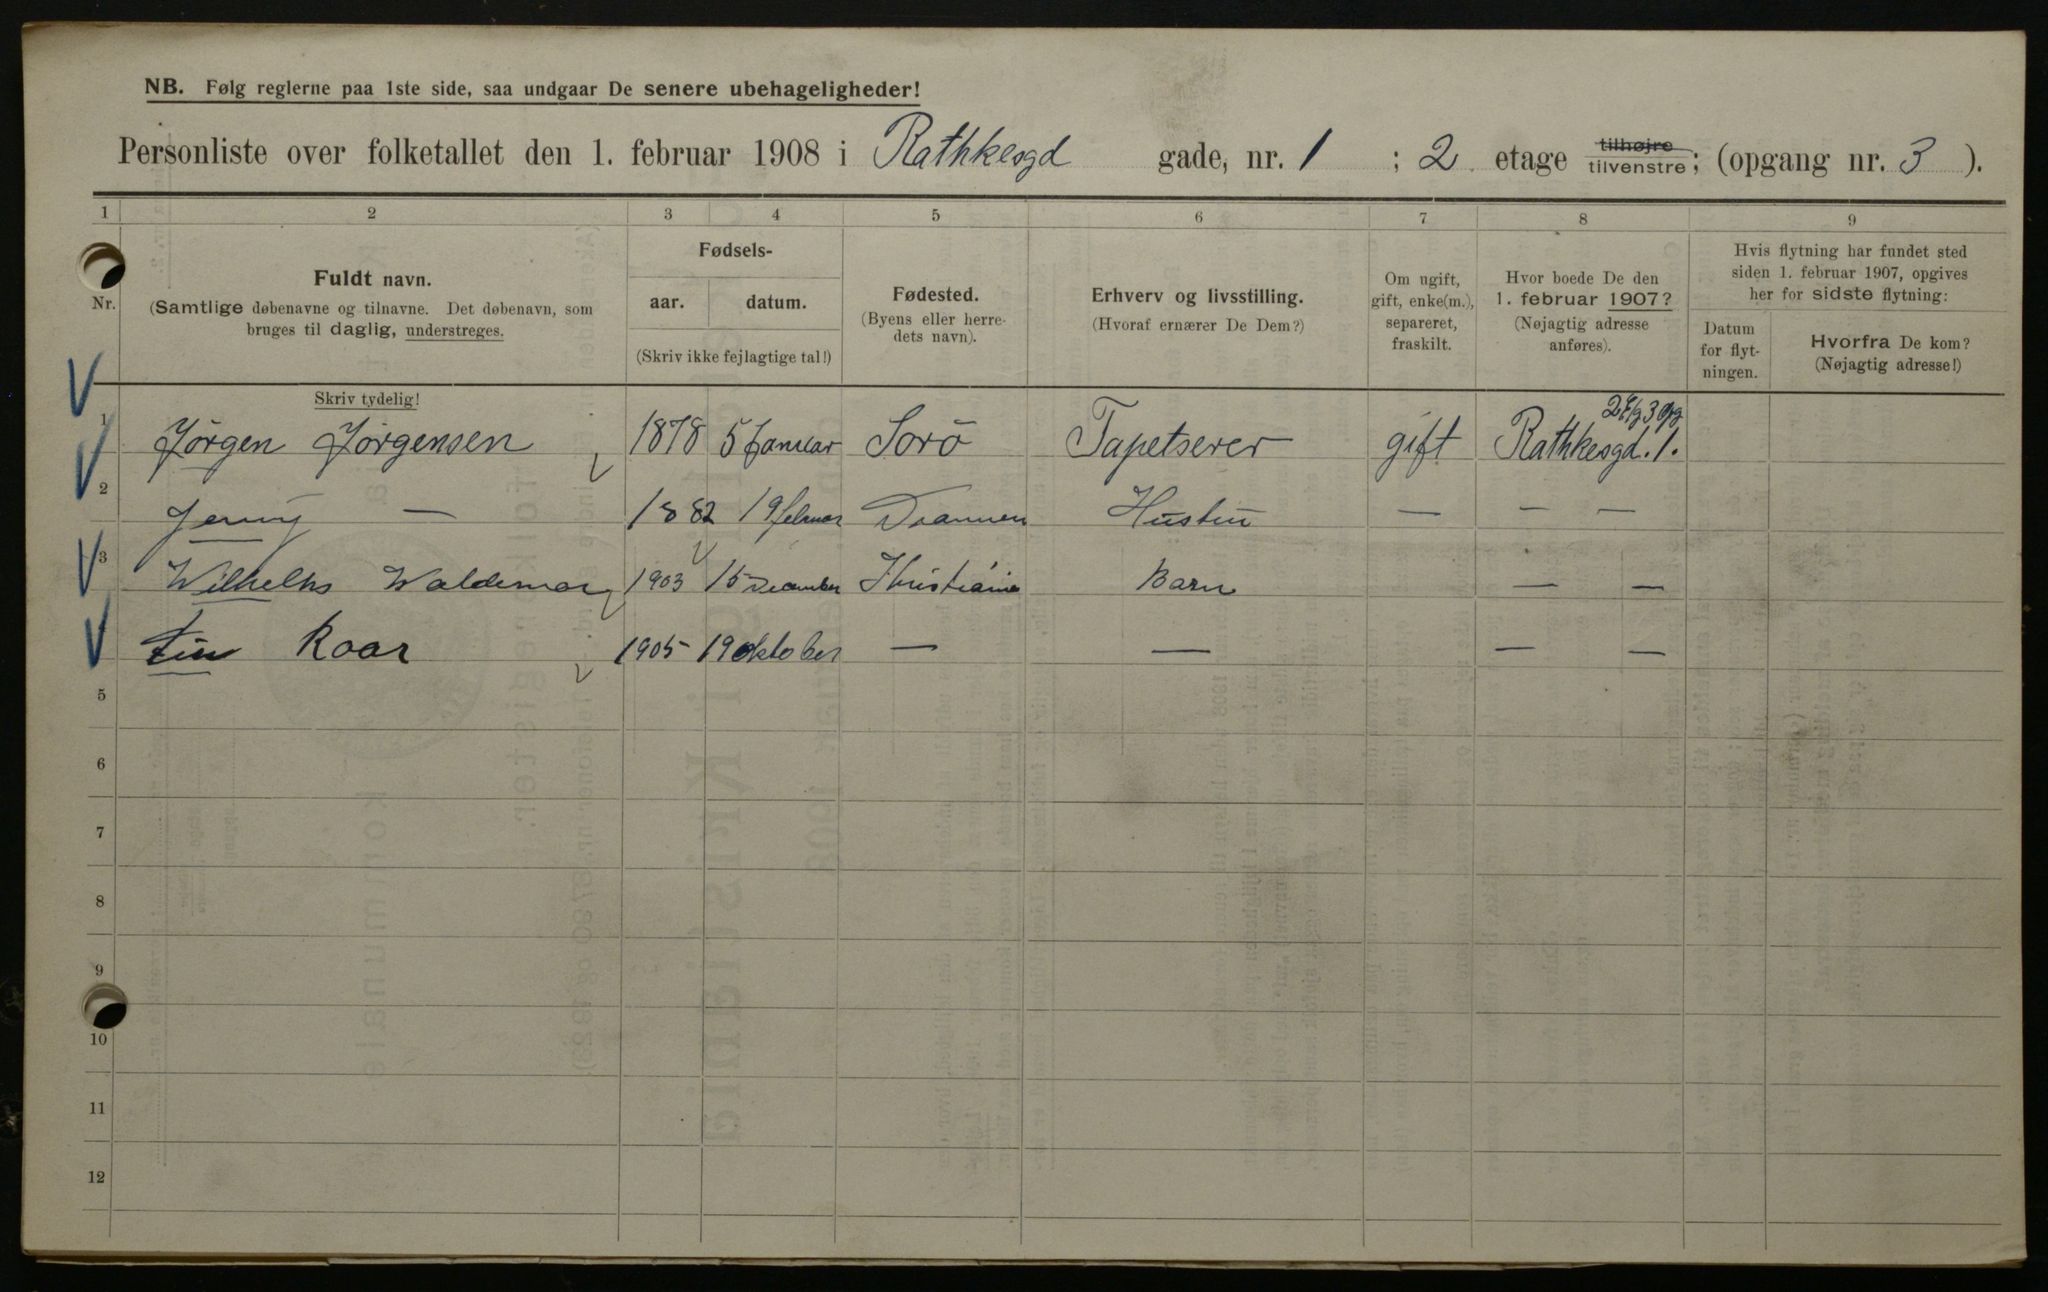 NB. Følg reglerne paa 1ste side, saa undgaar De senere ubehageligheder!
Personliste over folketallet den 1. februar 1908 i Rathkesgd gade, nr. 1 ; 2 etage tilhøjre tilvenstre; (opgang nr. 3 ).
1 2 3 4 5 6 7 8 9
Nr.
Fuldt navn.
(Samtlige døbenavne og tilnavne. Det døbenavn, som
bruges til daglig, understreges.
Skriv tydelig!
Fødsels-
aar. datum.
(Skriv ikke fejlagtige tal!)
Fødested.
(Byens eller herre-
dets navn).
Erhverv og livsstilling.
(Hvoraf ernærer De Dem?)
Om ugift,
gift, enke(m.),
separeret,
fraskilt.
Hvor boede De den
1. februar 1907?
(Nøjagtig adresse
anføres).
Hvis flytning har fundet sted
siden 1. februar 1907, opgives
her for sidste flytning:
Datum
for flyt-
ningen.
Hvorfra De kom?
(Nøjagtig adresse!)
1 Jörgen Jörgensen 1878 5 Januar Sorö Tapetserer gift Rathkesgd. 1. 2 Etg 3 Opg
2 Jenny — 1882 19 februar Drammen Hustru — — — —
3 Wilhelm Waldemar 1903 15 December Khristiania Barn — —
Roar 1905 19 oktober — — — —
5
6
7
8
9
10
11
12